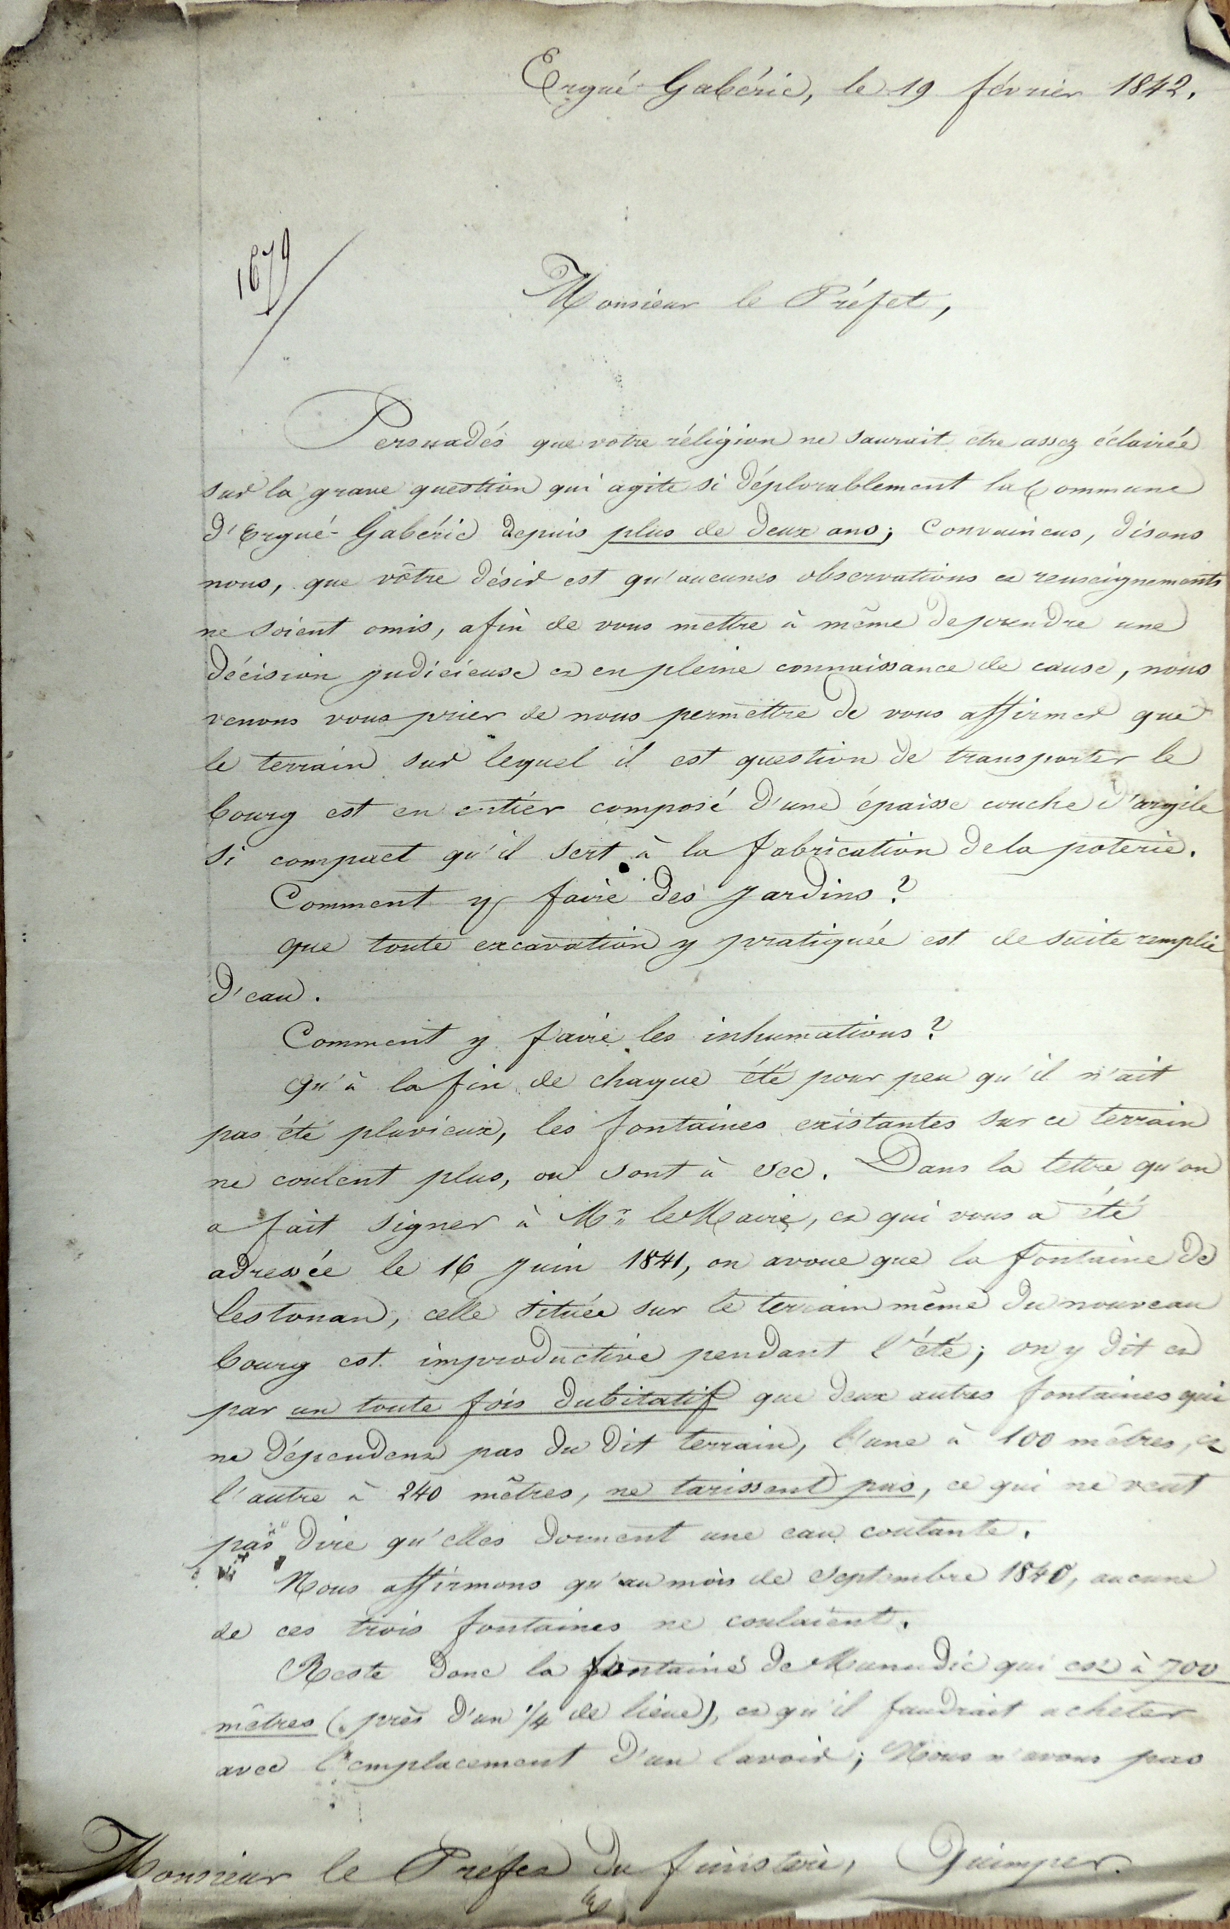 Ergué-Gabéric, le 19 février 1842.
1679
Monsieur le Préfet,
Persuadés que votre réligion ne saurait etre assez éclairée
sur la grave question qui agite si déplorablement la Commune
d'Ergué-Gabéric depuis plus de deux ans; Convaincus, disons
nous, que vôtre désir est qu'aucunes observations et renseignements
ne soient omis, afin de vous mettre à même de prendre une
décision judicieuse et en pleine connaissance de cause, nous
venons vous prier de nous permettre de vous affirmer que
le terrain sur lequel il est question de transporter le
bourg est en entier composé d'une épaisse couche d'argile
si compact qu'il sert à la fabrication de la poterie.
Comment y faire des jardins?
que toute excavation y pratiquée est de suite remplie
d'eau.
Comment y faire les inhumations?
Qu'à la fin de chaque été pour peu qu'il n'ait
pas été pluvieux, les fontaines existantes sur ce terrain
ne coulent plus, ou sont à sec. Dans la lettre qu'on
a fait signer à Mr le Maire, et qui vous a été
adressée le 16 juin 1841, on avoue que la fontaine de
Lestonan, celle située sur le terrain même du nouveau
bourg est improductive pendant l'été; on y dit et
par un toute fois dubitatif que deux autres fontaines qui
ne dépendent pas du dit terrain, l'une à 100 mêtres, et
l'autre à 240 mêtres, ne tarissent pas, ce qui ne veut
pas dire qu'elles donnent une eau coulante.
Nous affirmons qu'au mois de Septembre 1840, aucune
de ces trois fontaines ne coulaient.
Reste donc la fontaine de Munudic qui est à 700
mêtres (près d'un 1/4 de lieue), et qu'il faudrait acheter
avec l'emplacement d'un lavoir; Nous n'avons pas
Monsieur le Préfet du finistère, Quimper.